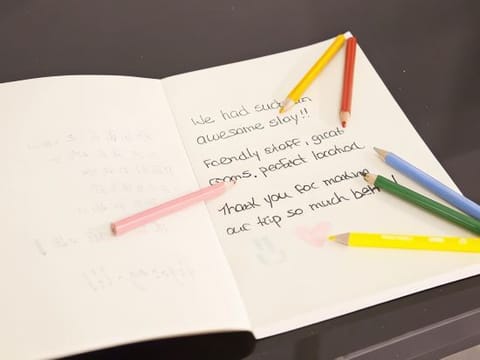 We had such an
awesome stay!!
Friendly staff, great
rooms, perfect location
Thank you for making
our trip so much better!